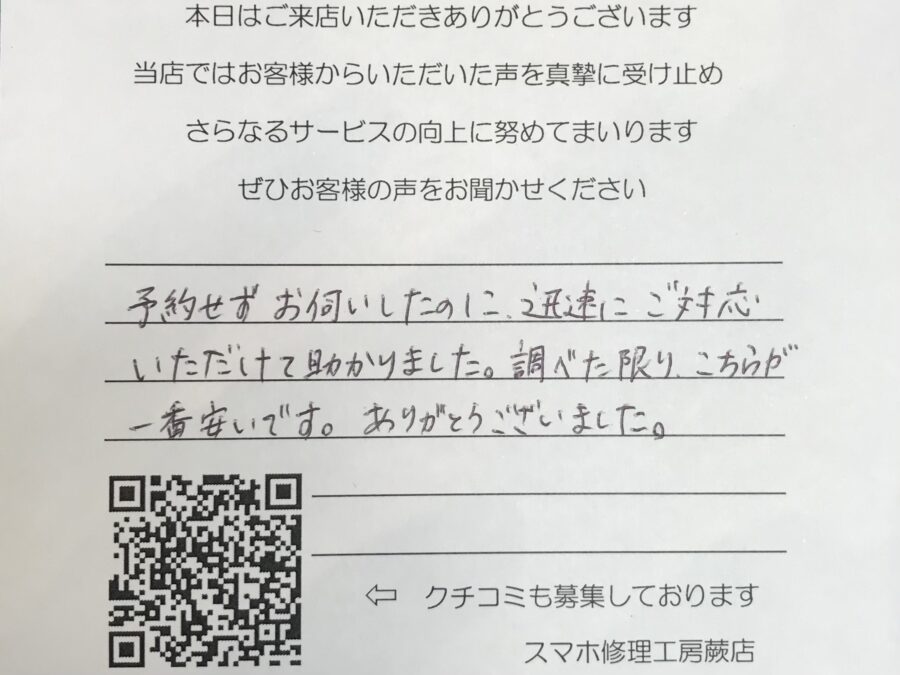 本日はご来店いただきありがとうございます
当店ではお客様からいただいた声を真摯に受け止め
さらなるサービスの向上に努めてまいります
ぜひお客様の声をお聞かせください
予約せずお伺いしたのに、迅速にご対応
いただけて助かりました。調べた限り、こちらが
一番安いです。ありがとうございました。
⇦ クチコミも募集しております
スマホ修理工房蕨店